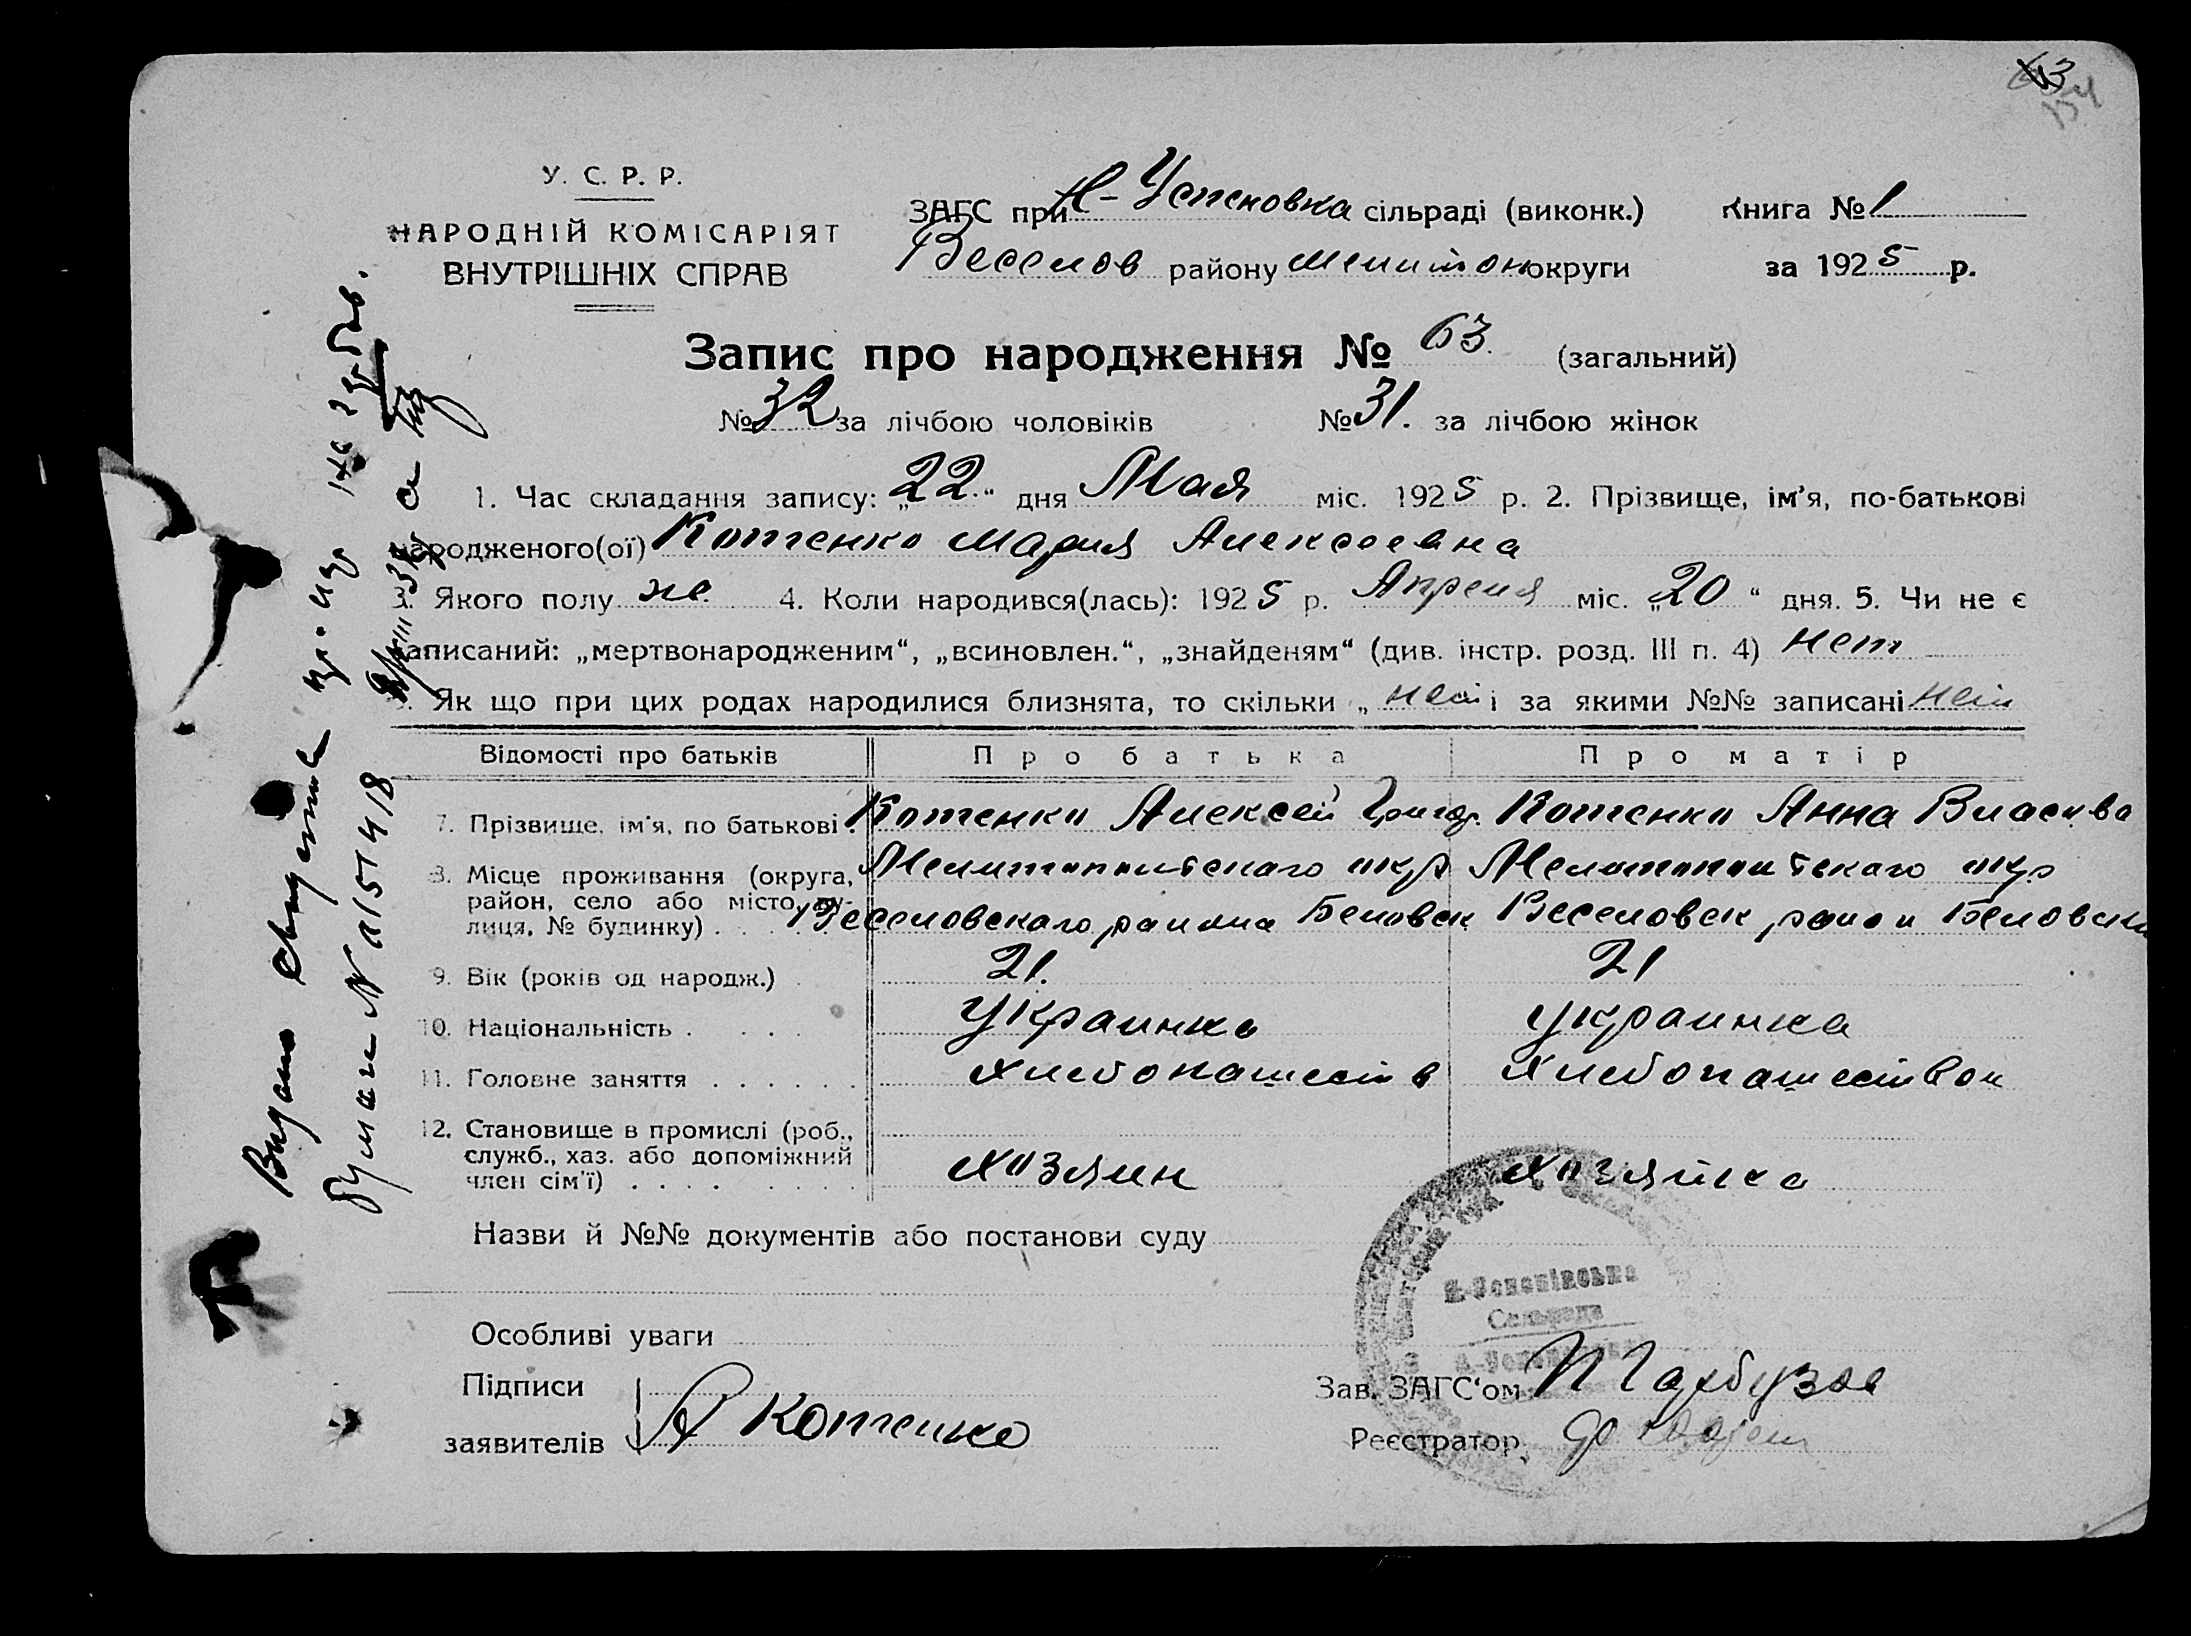 63
154
У. С. Р. Р.
НАРОДНІЙ КОМІСАРІЯТ
ВНУТРІШНІХ СПРАВ
ЗАГС при Н-Успеновка сільраді (виконк.) Книга № 1
Веселов району Мелитоп округи за 1925 р.
Запис про народження № 63. (загальний)
№ 32 за лічбою чоловіків № 31. за лічбою жінок
1. Час складання запису: „22“ дня Мая міс. 1925 р. 2. Прізвище, ім’я, по-батькові
народженого(ої) Котенко Мария Алексеевна
3. Якого полу же. 4. Коли народився(лась): 1925 р. Апреля міс. „20“ дня. 5. Чи не є
записаний: „мертвонародженим“, „всиновлен.“, „знайденям“ (див. інстр. розд. III п. 4) нет
Як що при цих родах народилися близнята, то скільки „ нет і за якими №№ записані нет
Відомості про батьків Про батька Про матір
7. Прізвище, ім’я, по батькові . Котенко Алексей Григор. Котенко Анна Власовна
8. Місце проживання (округа, Мелитопольскаго окр Мелитопольскаго окр
район, село або місто, ву- Веселовскаго района Беловск Веселовск район
лиця, № будинку) . . . .
9. Вік (років од народж.) . 21. 21
10. Національність . . . . Украинко украинка
11. Головне заняття . . . . . . хлебопашеств хлебопашеством
12. Становище в промислі (роб.,
служб., хаз. або допоміжний хозяин хозяйка
член сім’ї) . . . . . . .
Назви й №№ документів або постанови суду
Особливі уваги
Підписи
заявителів А Котенко
Зав. ЗАГС‘ом Гарбузов
Реєстратор
Видано